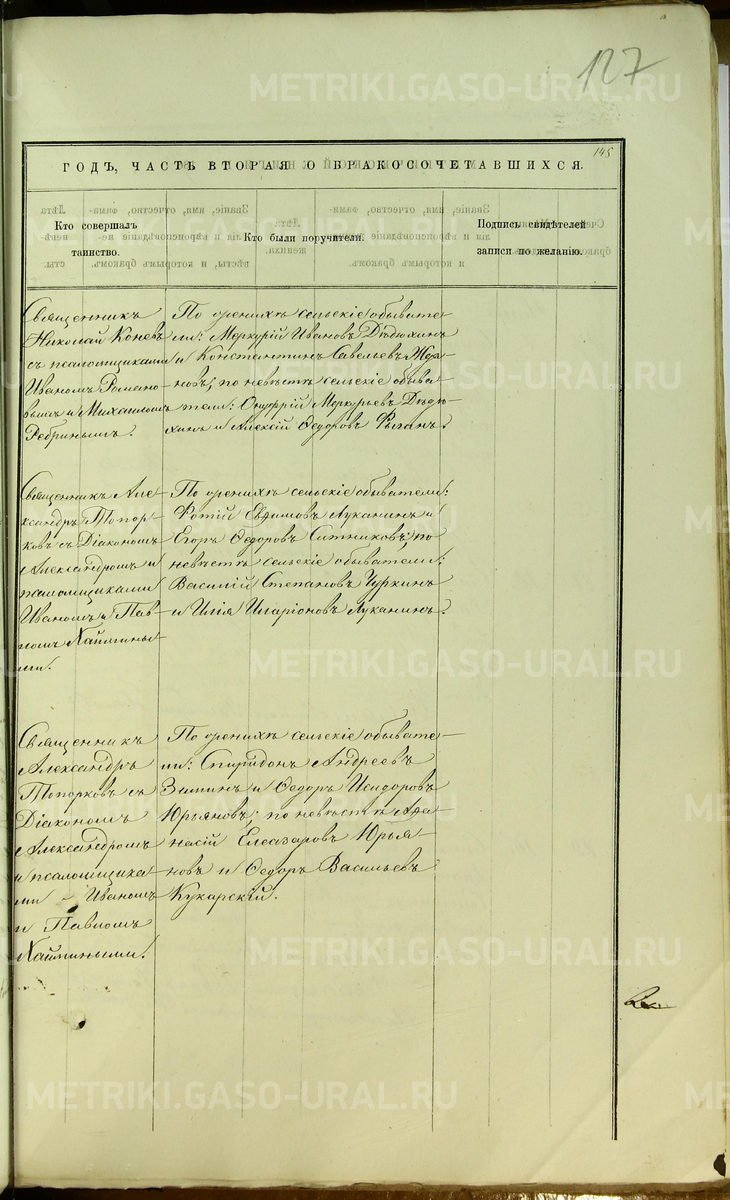 127
145
ГОДЪ, ЧАСТЬ ВТОРАЯ О БРАКОСОЧЕТАВШИХСЯ.
Кто совершалъ
таинство.
Кто были поручители.
Подпись свидѣтелей
записи по желанію.
Священникъ
Николай Коневъ
съ псаломщиками
Иваномъ Романо-
вымъ и Михаиломъ
Ребринымъ.
По женихѣ сельскіе обывате-
ли: Меркурій Ивановъ Дѣдюхинъ
и Константинъ Савельевъ
новъ; по невѣстѣ сельскіе обыва-
тели: Меркурьевъ Дѣдю-
хинъ и Алексій Ѳедоровъ
Священникъ Але-
ксандръ Топор-
ковъ съ Діакономъ
Александромъ и
псаломщиками
Иваномъ и Пав-
ломъ Хаймины-
ми.
По женихѣ сельскіе обыватели:
Фотій Евѳимовъ Луканинъ и
Егоръ Ѳедоровъ Ситниковъ, по
невѣстѣ сельскіе обыватели:
Василій Степановъ Чуркинъ
и Илія Иларіоновъ Луканинъ.
Священникъ
Александръ
Топорковъ съ
Діакономъ
Александромъ
и псаломщика-
ми Иваномъ
и Павломъ
Хаймиными.
По женихѣ сельскіе обывате-
ли: Спиридонъ Андреевъ
Зыминъ и Ѳедоръ Исидоровъ
Юрьяновъ; по невѣстѣ Аѳа-
насій Елеазаровъ Юрья-
новъ и Ѳедоръ Васильевъ
Кукарскій.
METRIKI.GASO-URAL.RU
METRIKI.GASO-URAL.RU
METRIKI.GASO-URAL.RU
METRIKI.GASO-URAL.RU
METRIKI.GASO-URAL.RU
METRIKI.GASO-URAL.RU
METRIKI.GASO-URAL.RU
METRIKI.GASO-URAL.RU